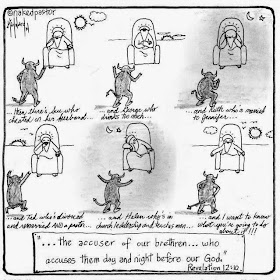 @nakedpastor
...then there's Sue who
cheated on his husband...
...and George who
drinks too much...
...and Ruth who's married
to Jennifer...
...and Ted who's divorced
and remarried and a pastor...
...and Helen who's in
church leadership and teaches men...
...and I want to know
what you're going to do
about it!!!
"...the accuser of our brethren...who
accuses them day and night before our God."
Revelation 12:10